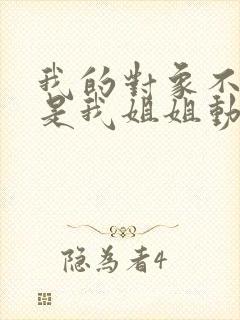 我的對象不
是我姐姐動
隐為者4